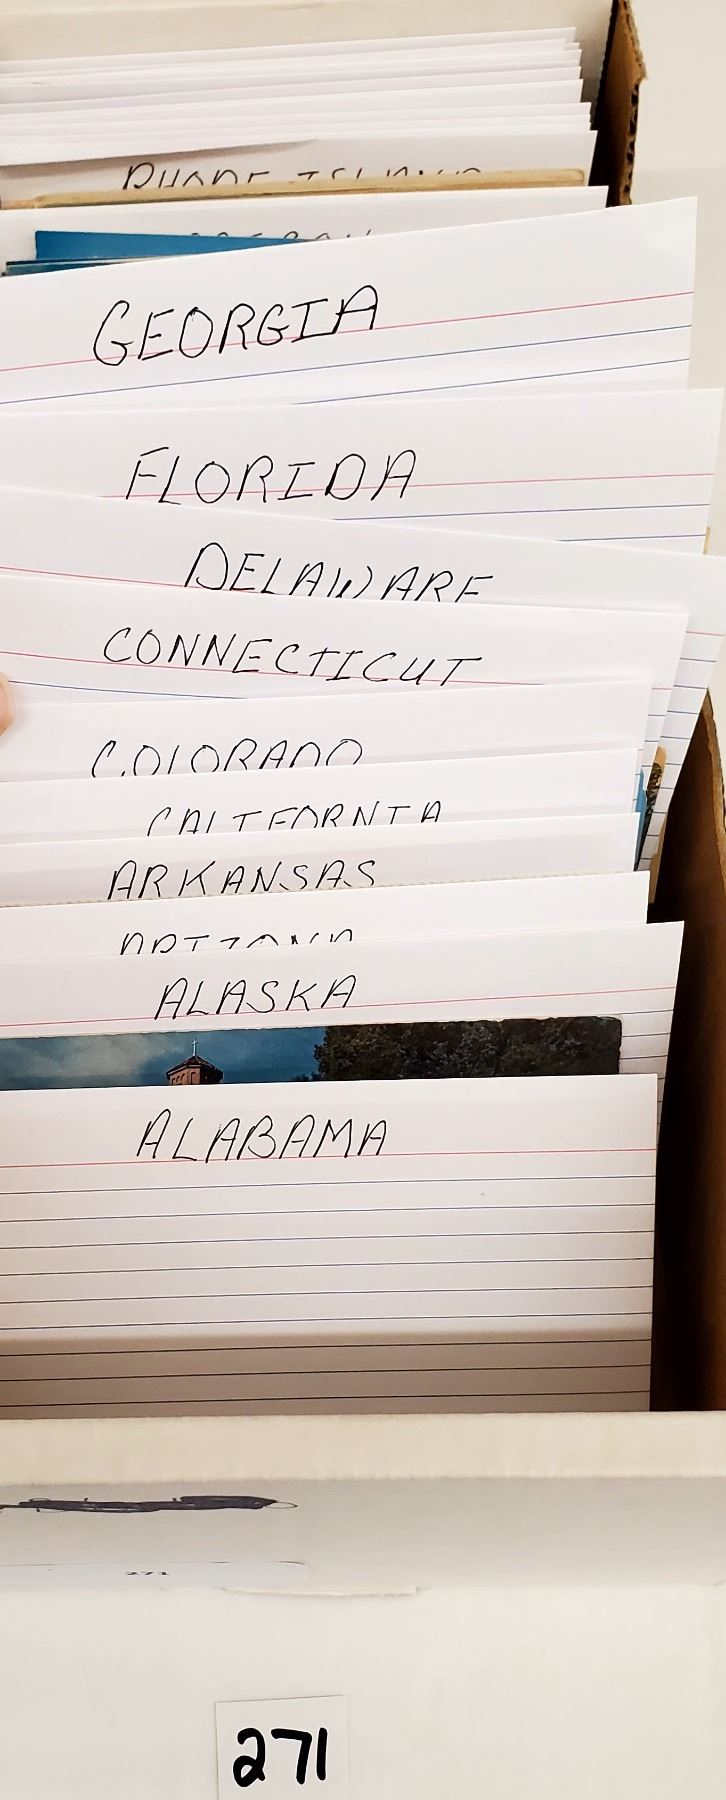 RHODE ISLAND
OREGON
GEORGIA
FLORIDA
DELAWARE
CONNECTICUT
COLORADO
CALIFORNIA
ARKANSAS
ARIZONA
ALASKA
ALABAMA
271
271